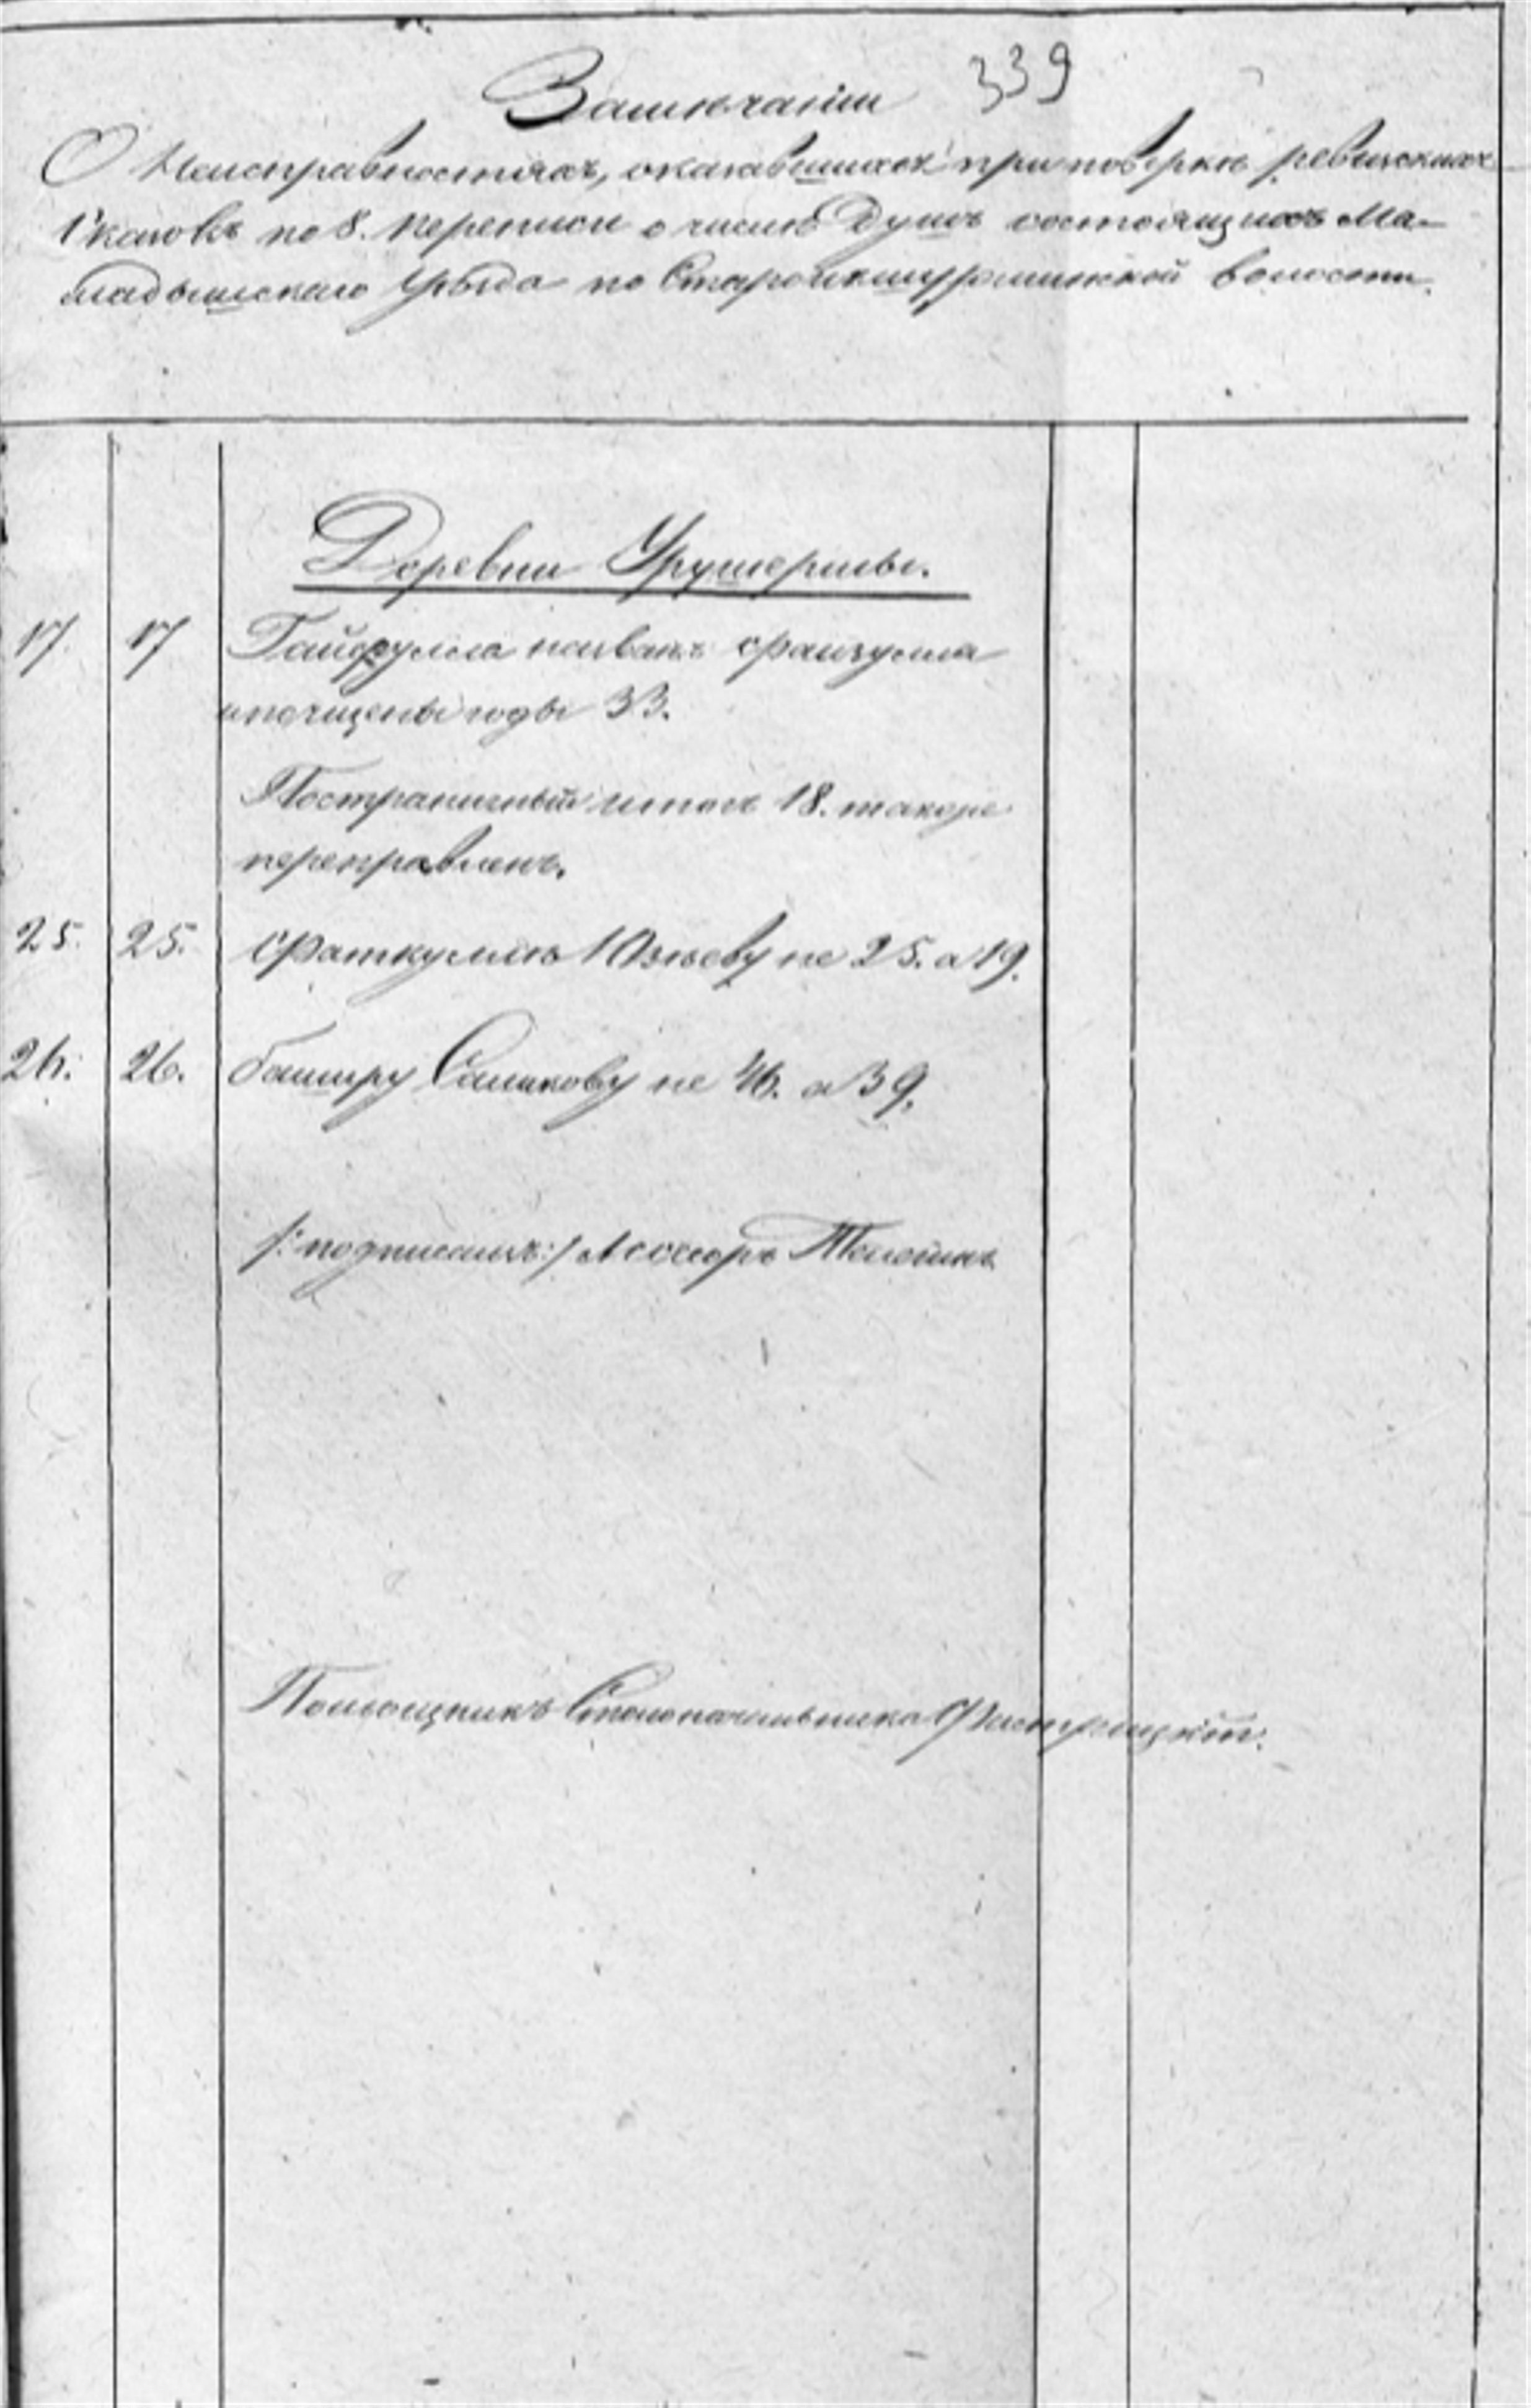 339
Замечанiи
О Неисправностяхъ, оказавшихся при поверкѣ ревизскихъ
Сказокъ по 8. переписи о числѣ Душъ состоящихъ Ма-
мадышскаго Уѣзда по Староикшурминской волости.
Деревни Урушермы.
17 17 Гайфулла названъ Фаизулла
и почищены годы 33.
Постраничный итогъ 18. также
переправленъ.
25. 25. Фаткуллѣ Юзѣеву не 25. а 19.
26. 26. Баширу Салихову не 46. а 39.
/: подписалъ :/ Асессоръ
Помощникъ Столоначальника